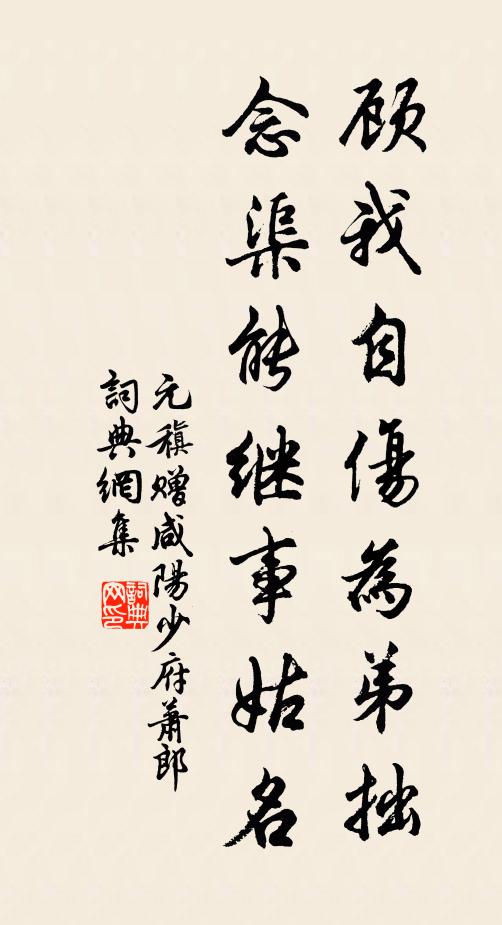 顾我自傷為弟拙
念渠能继事姑名
元稹赠咸陽少府蕭郎
詞典網集
詞典網印